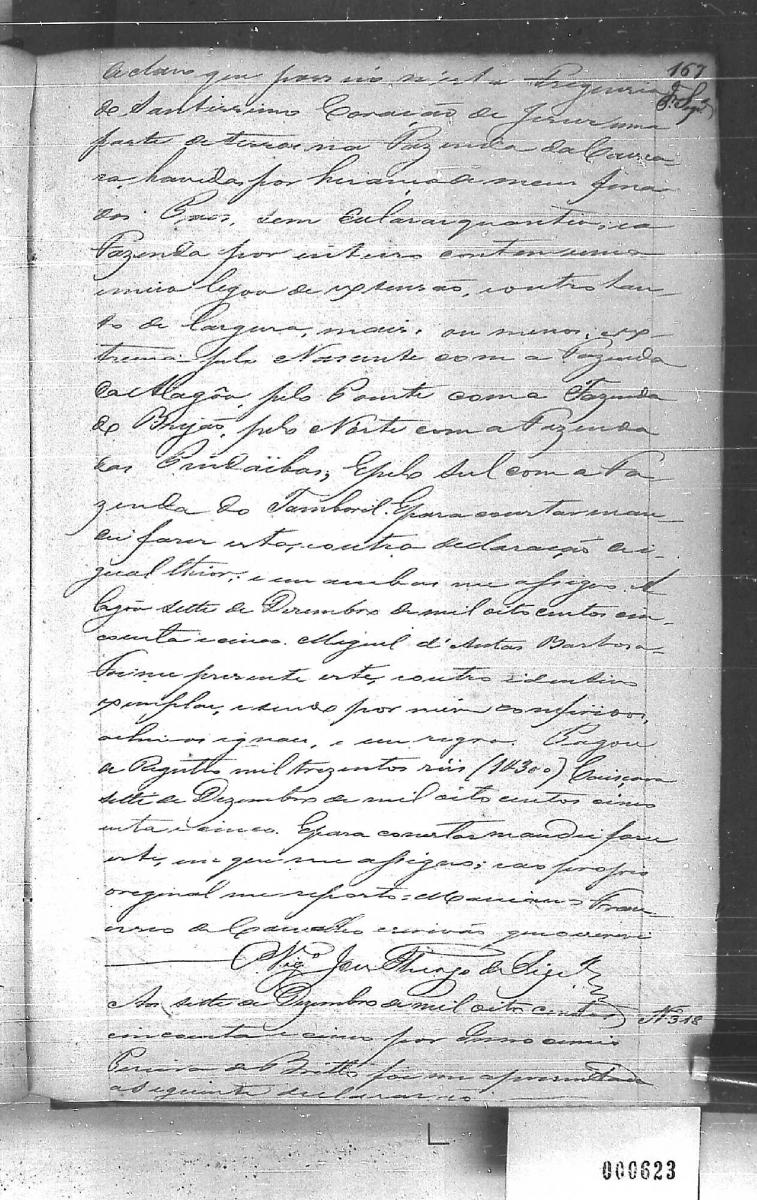 167
Declaro que possúo n'esta Freguesia
do Santissimo Coração de Jesus uma
parte de terras na Fazenda da Caissa-
ra, havidas por herança de meus fina-
dos Paes, sem
Fazenda por inteiro contem uma
e meia legoa de extensão, e outro tan-
to de largura, mais, ou menos, ex-
trema pelo Nascente com a Fazenda
da Alagôa, pelo Poente com a Fazenda
do Brejão, pelo Norte com a Fazenda
das Pindaibas; E pelo Sul com a Fa
zenda do Tamboril. E para constar man-
dei fazer esta, e outra declaração de i-
gual theor; e em ambas me assigno. A
lagôa sette de Dezembro de mil oito centos cin-
coenta e cinco. Miguel d'Antas Barbosa-
Foi-me presente este, e outro identico
exemplar, e sendo por mim conferidos,
achei-os iguaes, e em regra. Pagou
de Registro mil trezentos réis (1$300) Caissara
sette de Dezembro de mil oito centos cinco
enta e cinco. E para constar mandei fazer
este, em que me assigno; e ao proprio
original me reporto = Marciano Fran
cisco de Carvalho escrivão, que escrevi
O Vigº José Thiago de Siqrª
Aos sette de Dezembro de mil oito centos Nº 318
cincoenta e cinco por Innocencio
Pereira de Britto foi-me apresentada
a seguinte declaração
000623